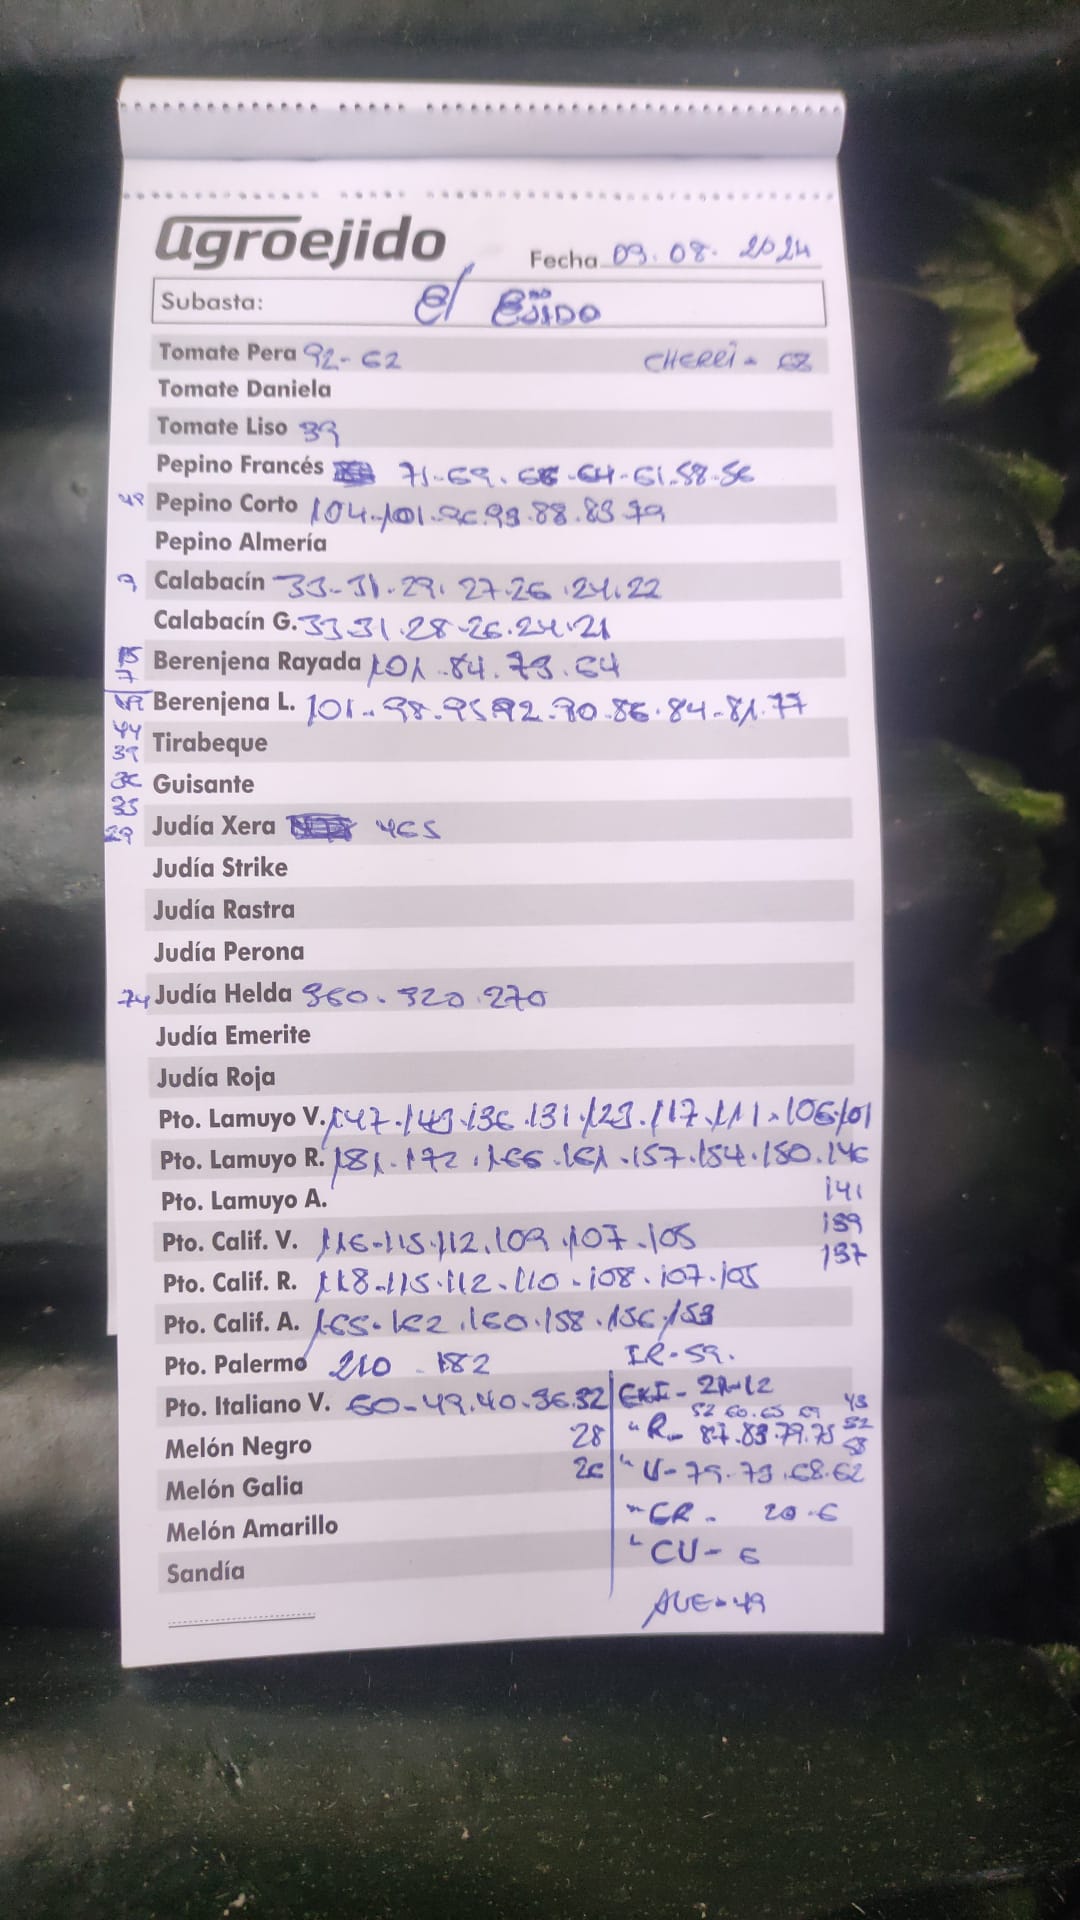 agroejido
Fecha 09.08.2024
Subasta: El Ejido
Tomate Pera 92-62 CHERRI-68
Tomate Daniela
Tomate Liso 39
Pepino Francés 71-69.66-64-61.58-56
49 Pepino Corto 104-101-96.93.88.83.79
Pepino Almería
9 Calabacín 33-31.29.27.26.24.22
Calabacín G. 33.31.28-26.24.21
15
7
Berenjena Rayada 101.84.73.64
Berenjena L. 101-98.95 92.90.86.84-81.77
44
39
Tirabeque
Guisante
33
29
Judía Xera 465
Judía Strike
Judía Rastra
Judía Perona
74 Judía Helda 360.320.270
Judía Emerite
Judía Roja
Pto. Lamuyo V. 147.143.136.131.123.117.111.106.101
Pto. Lamuyo R. 181.172.166.161.157.154.150.146
141
139
137
Pto. Lamuyo A.
Pto. Calif. V. 116-115.112.109.107.105
Pto. Calif. R. 118-115.112-110-108.107.105
Pto. Calif. A. 165.162.160.158.156.153
Pto. Palermo 210-182 IR-59.
Pto. Italiano V. 60-49.40.36.32
28
26
EKI-21-12
52 60.65 69 43
"R- 87.83.79.75 52
58
"V-79.73.68.62
"CR- 20-6
"CU-6
Melón Negro
Melón Galia
Melón Amarillo
Sandía
AUE-49